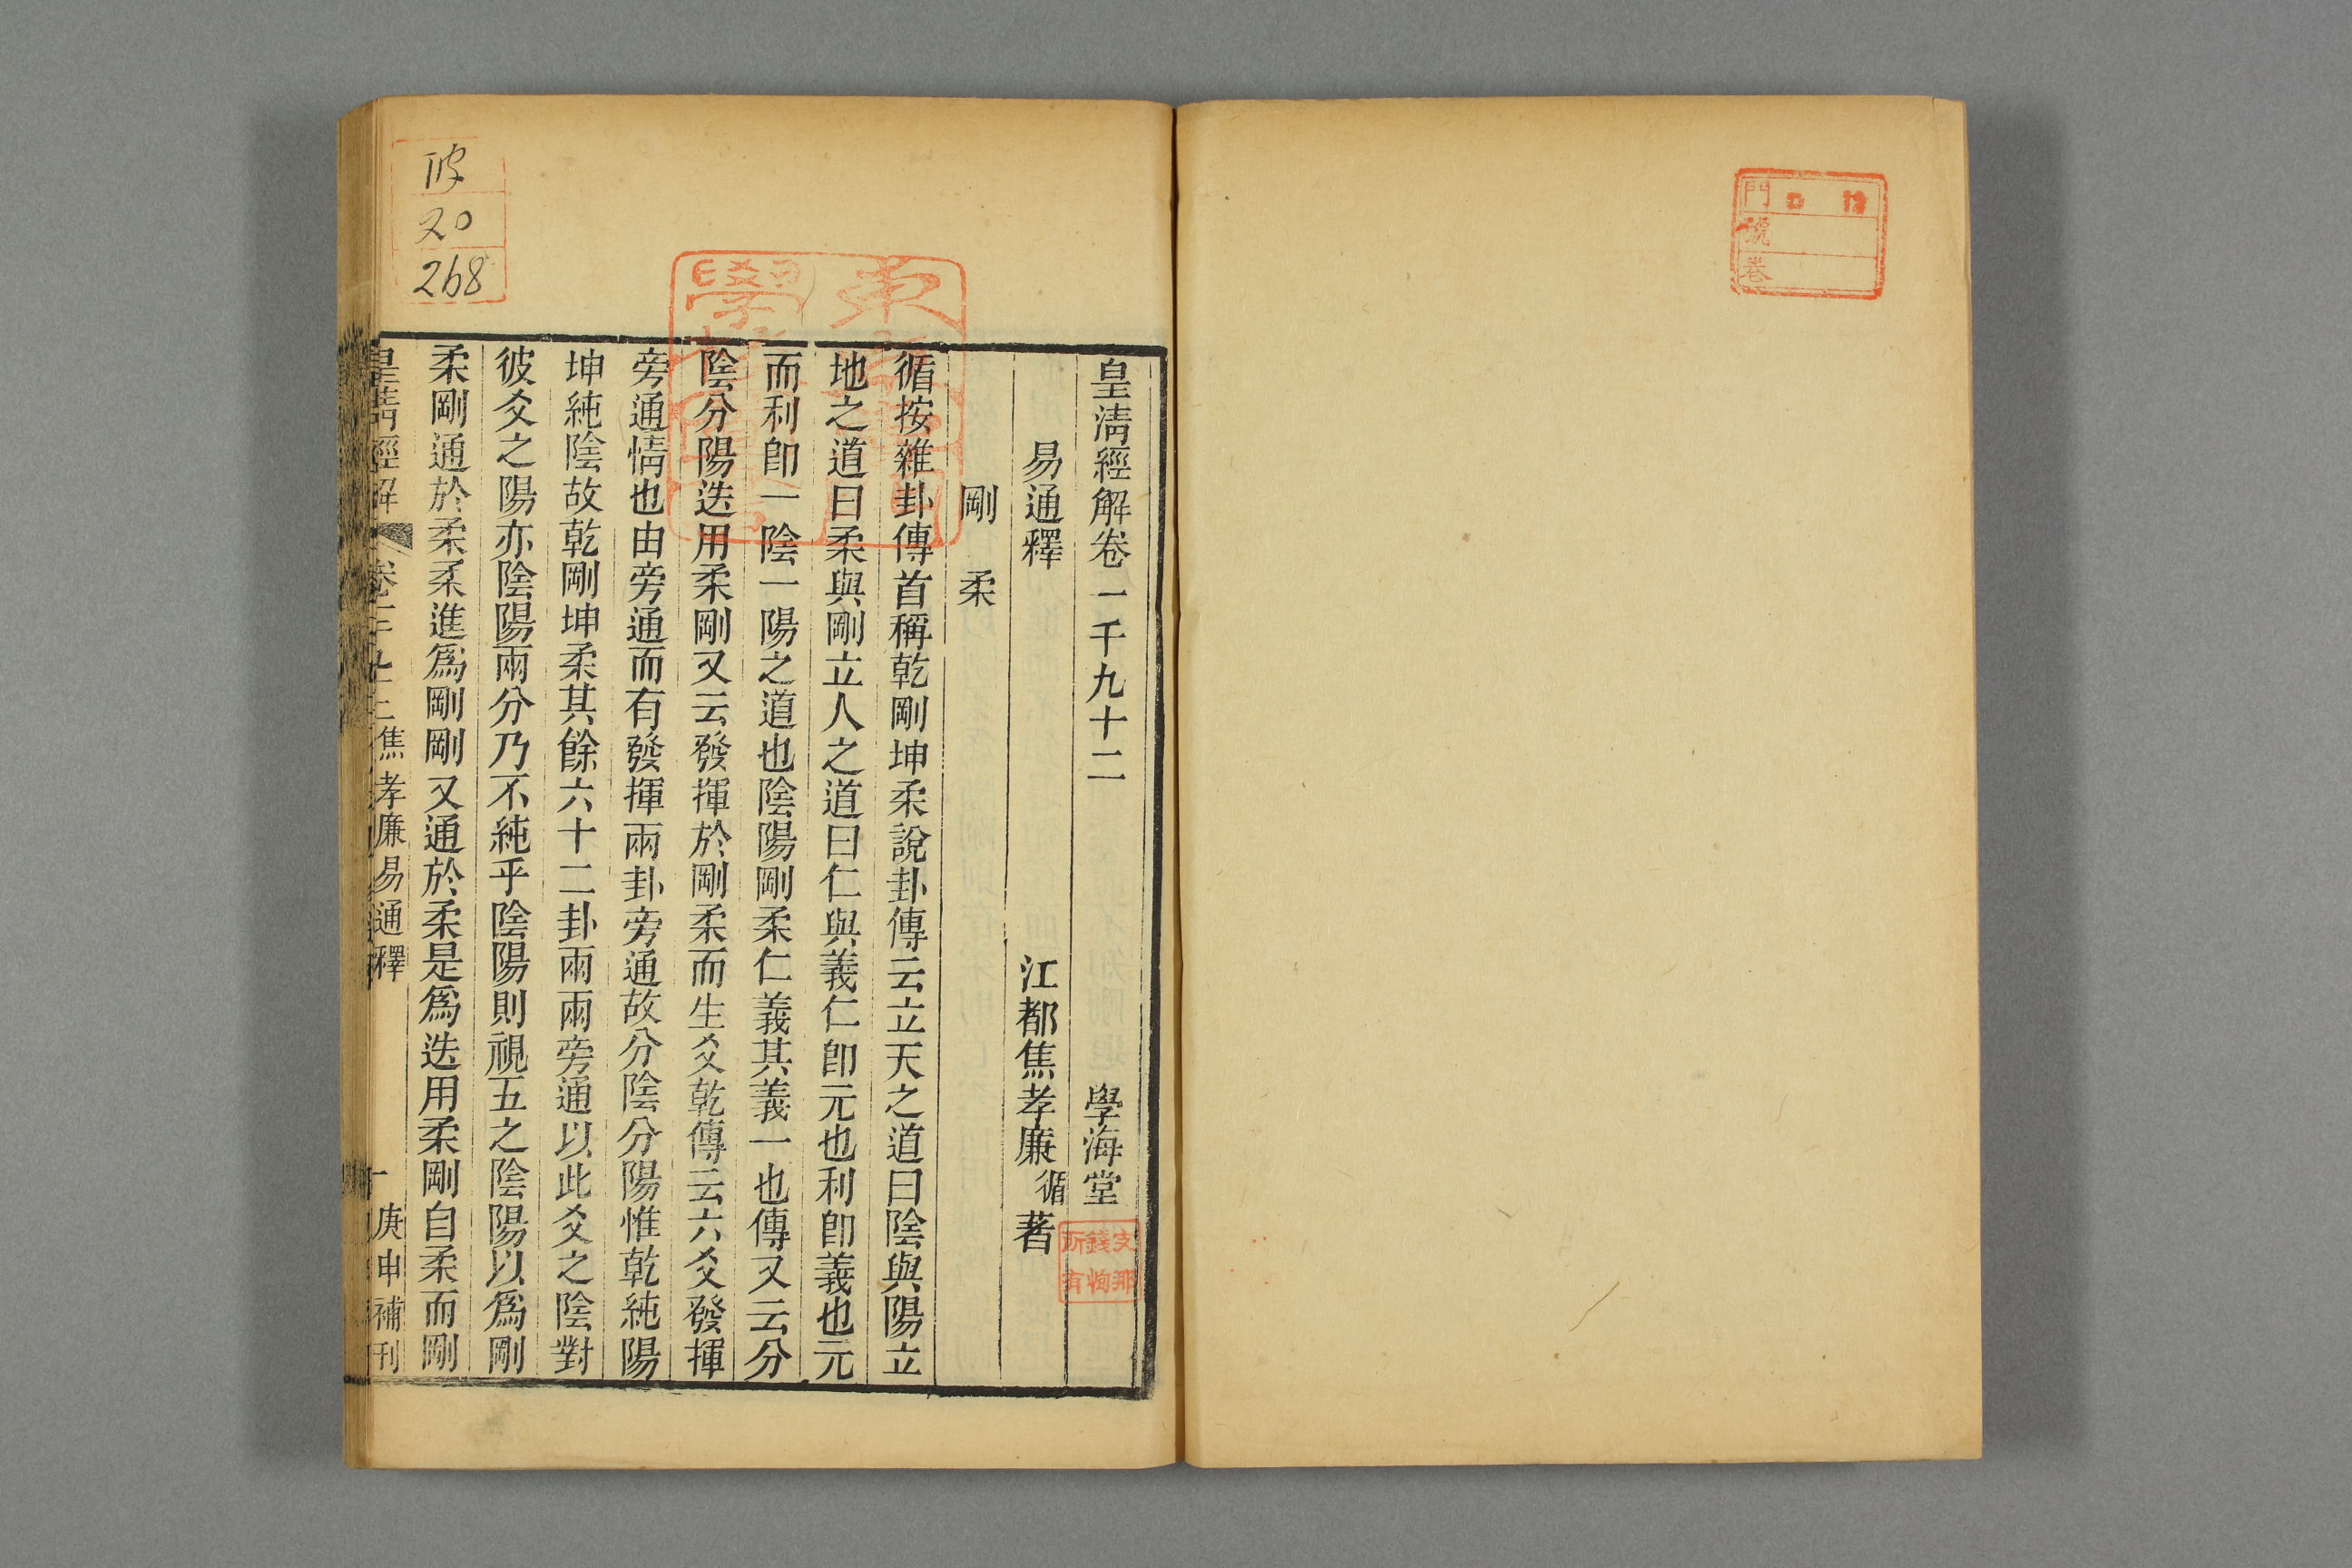 皇淸經解卷一千九十二 學海堂
易通釋 江都焦孝廉循著
剛柔
循按雜卦傳首稱乾剛坤柔說卦傳云立天之道曰陰與陽立
地之道曰柔與剛立人之道曰仁與義仁卽元也利卽義也元
而利卽一陰一陽之道也陰陽剛柔仁義其義一也傳又云分
陰分陽迭用柔剛又云發揮於剛柔而生爻乾傳云六爻發揮
旁通情也由旁通而有發揮兩卦旁通故分陰分陽惟乾純陽
坤純陰故乾剛坤柔其餘六十二卦兩兩旁通以此爻之陰對
彼爻之陽亦陰陽兩分乃不純乎陰陽則視五之陰陽以爲剛
柔剛通於柔柔進爲剛剛又通於柔是爲迭用柔剛自柔而剛
皇淸經解
焦孝廉易通釋
一
庚申補刊
20
268
門
號
卷
支那
錢恂
所有